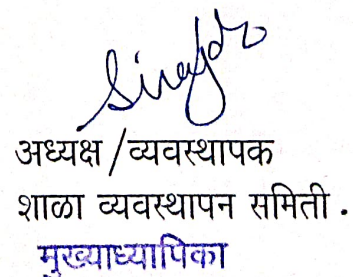 अध्यक्ष / व्यवस्थापक
शाळा व्यवस्थापन समिती .
मुख्याध्यापिका